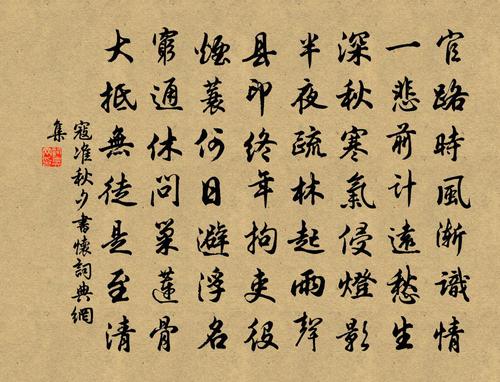 官路時風漸識情
一悲前計遠愁生
深秋寒氣侵燈影
半夜疏林起雨聲
县印終年拘吏役
煙蓑何日避浮名
窮通休問巢蓮骨
大抵無徒是至清
寇准秋夕書懷詞典網
集